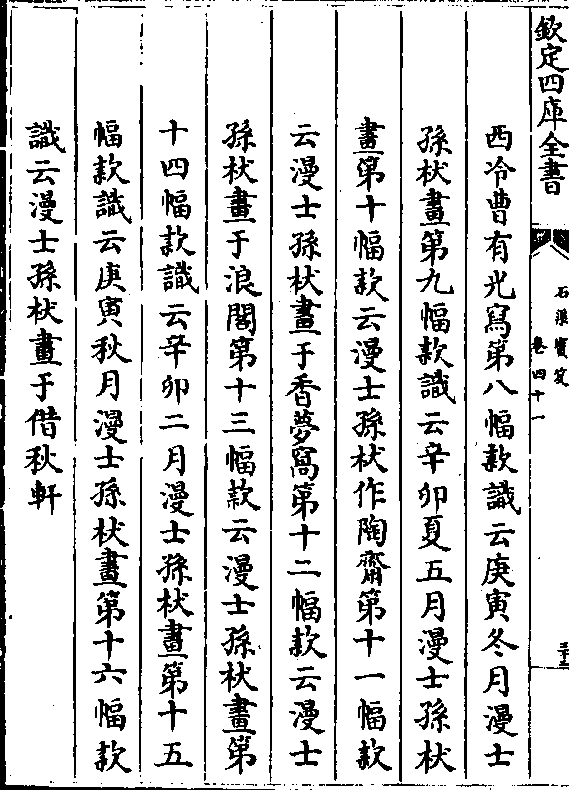 欽定四庫全書
石渠寶笈
卷四十一
西冷曹有光寫第八幅款識云庚寅冬月漫士
孫杕畫第九幅款識云辛卯夏五月漫士孫杕
畫第十幅款云漫士孫杕作陶齋第十一幅款
云漫士孫杕畫于香夢窩第十二幅款云漫士
孫杕畫于浪閣第十三幅款云漫士孫杕畫第
十四幅款識云辛卯二月漫士孫杕畫第十五
幅款識云庚寅秋月漫士孫杕畫第十六幅款
識云漫士孫杕畫于借秋軒